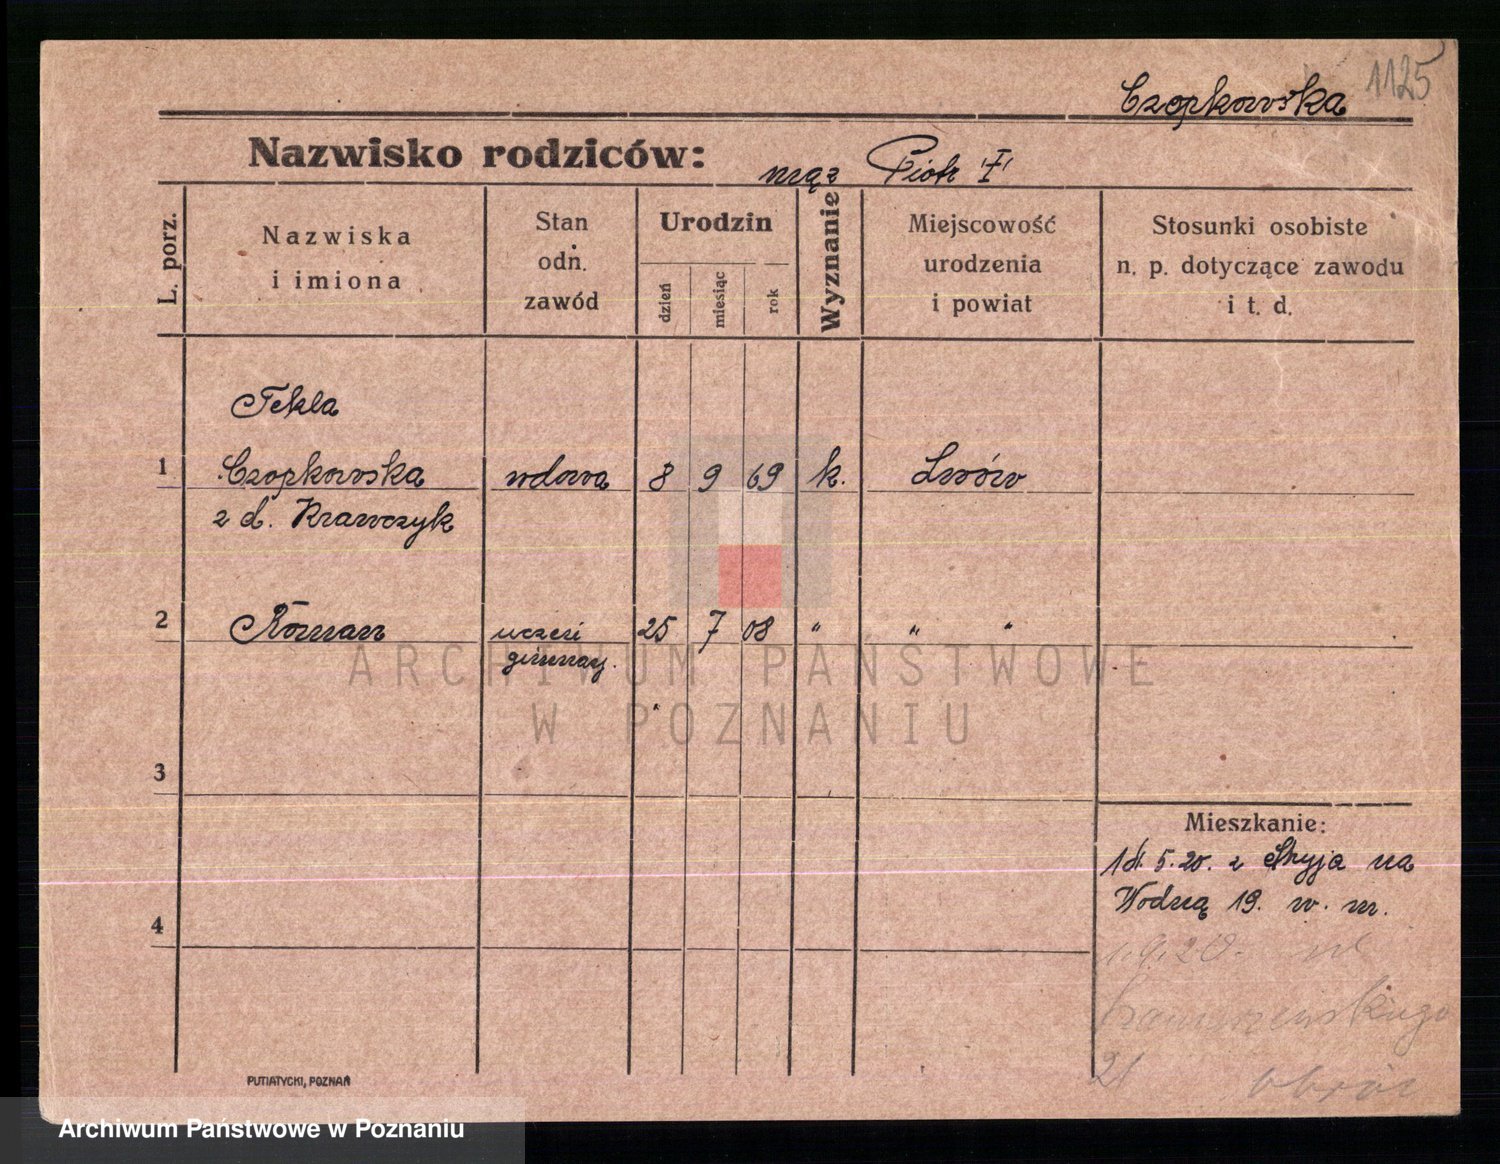 1125
Czopkowska
Nazwisko rodziców: mąż Piotr "†"
L. porz.
Nazwiska
i imiona
Stan
odn.
zawód
Urodzin
dzień
miesiąc
rok
Wyznanie
Miejscowość
urodzenia
i powiat
Stosunki osobiste
n. p. dotyczące zawodu
i t. d.
Tekla
1 Czopkowska wdowa 8 9 69 k. Lwów
z d. Krawczyk
2 Roman uczeń 25 7 08 " " "
gimnaz.
ARCHIWUM PAŃSTWOWE
W POZNANIU
3
Mieszkanie:
14.5.20. z Stryja na
Wodną 19. w. m.
4
1.9.20.
21 obróc
PUTIATYCKI, POZNAŃ
Archiwum Państwowe w Poznaniu